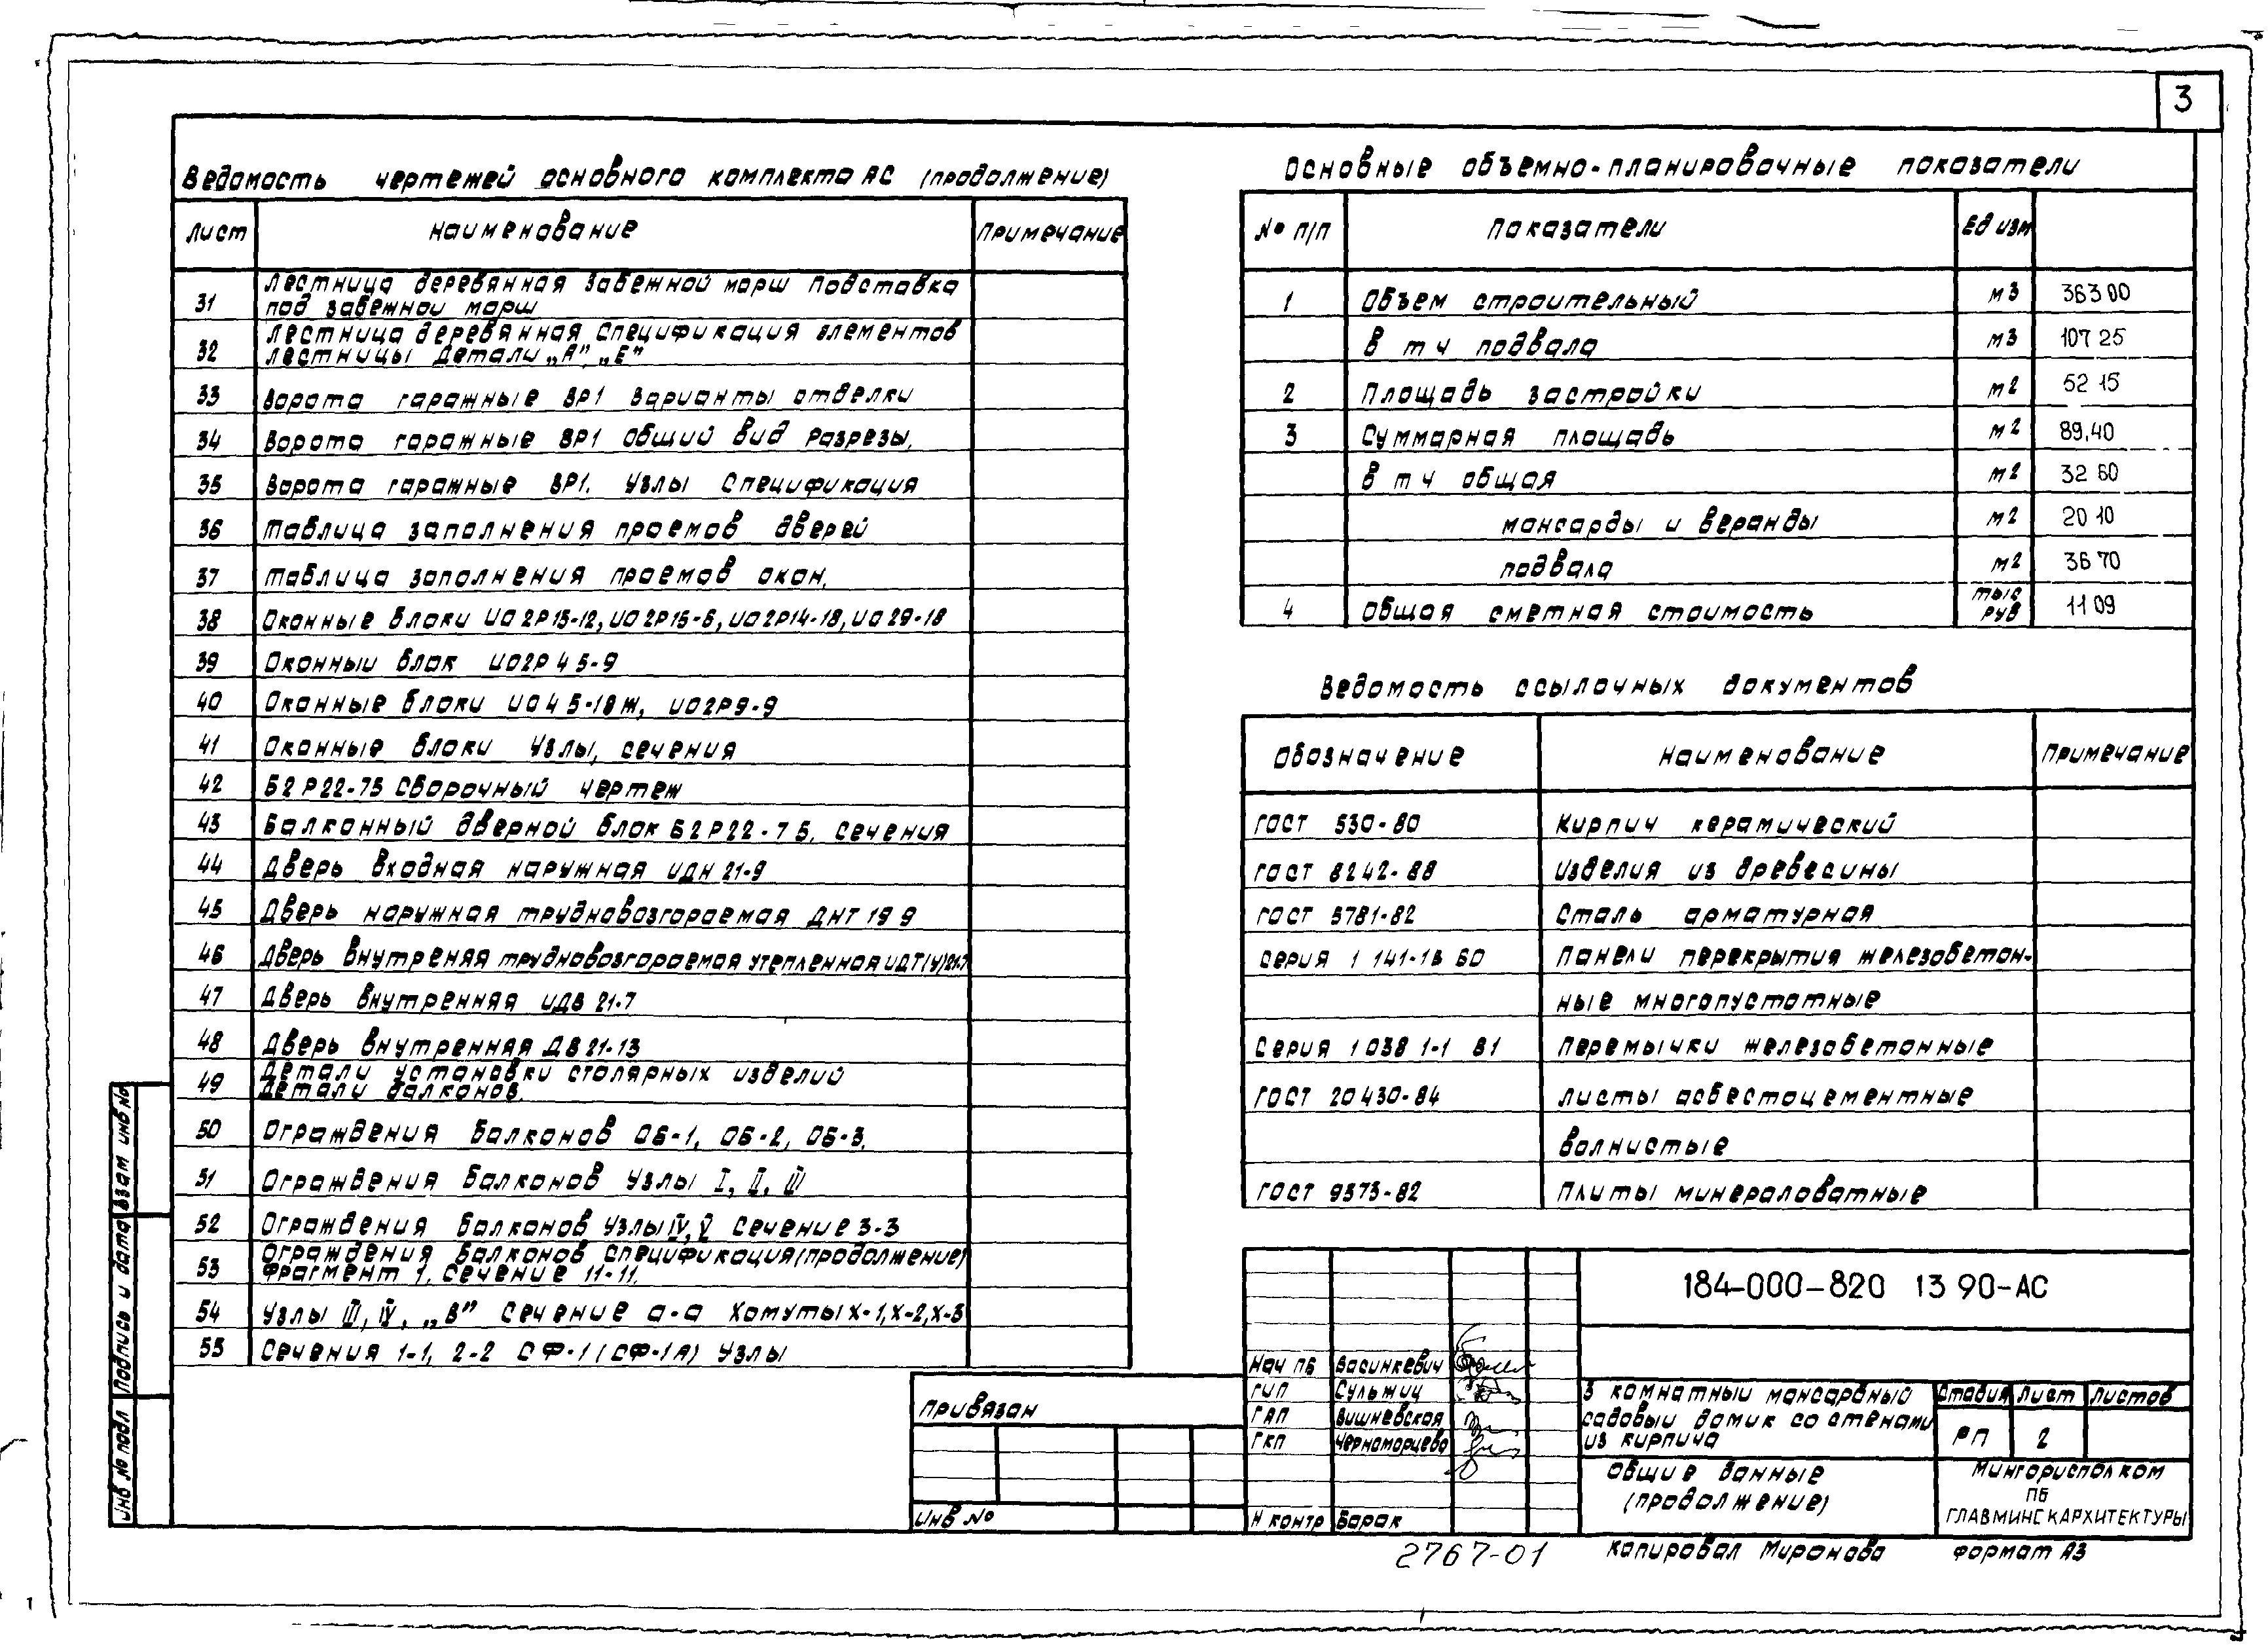 3
Ведомость чертежей основного комплекта АС (продолжение)
Лист Наименование Примечание
31 Лестница деревянная Забежной марш Подставка
под забежной марш
32 Лестница деревянная Спецификация элементов
лестницы Детали „А”, „Е”
33 Ворота гаражные ВР1 Варианты отделки
34 Ворота гаражные ВР1 Общий вид Разрезы.
35 Ворота гаражные ВР1. Узлы Спецификация
36 Таблица заполнения проемов дверей
37 Таблица заполнения проемов окон.
38 Оконные блоки ИО2Р15-12, ИО2Р15-6, ИО2Р14-18, ИО29-18
39 Оконный блок ИО2Р 4 5-9
40 Оконные блоки ИО4 5-18Ж, ИО2Р9-9
41 Оконные блоки Узлы, сечения
42 Б2Р22-75 Сборочный чертеж
43 Балконный дверной блок Б2Р22-7 5. Сечения
44 Дверь входная наружная ИДН 21-9
45 Дверь наружная трудновозгораемая ДНТ 19 9
46 Дверь внутреняя трудновозгораемая утепленная ИДТ(У)21-7
47 Дверь внутренняя ИДВ 21-7
48 Дверь внутренняя ДВ21-13
49 Детали установки столярных изделий
Детали балконов.
50 Ограждения балконов ОБ-1, ОБ-2, ОБ-3.
51 Ограждения балконов Узлы I, II, III
52 Ограждения балконов Узлы IV, V Сечение 3-3
53 Ограждения балконов Спецификация (продолжение)
Фрагмент 1. Сечение 11-11.
54 Узлы III, IV, „В” Сечение а-а Хомуты Х-1, Х-2, Х-3
55 Сечения 1-1, 2-2 СФ-1 (СФ-1А) Узлы
Основные объемно-планировочные показатели
№ п/п Показатели Ед изм
1 Объем строительный м3 363 00
в т ч подвала м3 107 25
2 Площадь застройки м2 52 15
3 Суммарная площадь м2 89,40
в т ч общая м2 32 60
мансарды и веранды м2 20 10
подвала м2 36 70
4 Общая сметная стоимость тыс руб 11 09
Ведомость ссылочных документов
Обозначение Наименование Примечание
ГОСТ 530-80 Кирпич керамический
ГОСТ 8242-88 Изделия из древесины
ГОСТ 5781-82 Сталь арматурная
Серия 1 141-1В 60 Панели перекрытия железобетон-
ные многопустотные
Серия 1 038 1-1 В1 Перемычки железобетонные
ГОСТ 20430-84 Листы асбестоцементные
волнистые
ГОСТ 9573-82 Плиты минераловатные
184-000-820 13 90-АС
Нач ПБ Васинкевич
ГИП Сульжиц
ГАП Вишневская
ГКП Черноморцева
Н контр Барак
3 комнатный мансардный
садовый домик со стенами
из кирпича
Стадия Лист Листов
РП 2
Общие данные
(продолжение)
Мингорисполком
ПБ
ГЛАВМИНСКАРХИТЕКТУРЫ
Привязан
Инв №
Инв № подл Подпись и дата Взам инв №
2767-01 Копировал Миронова Формат А3